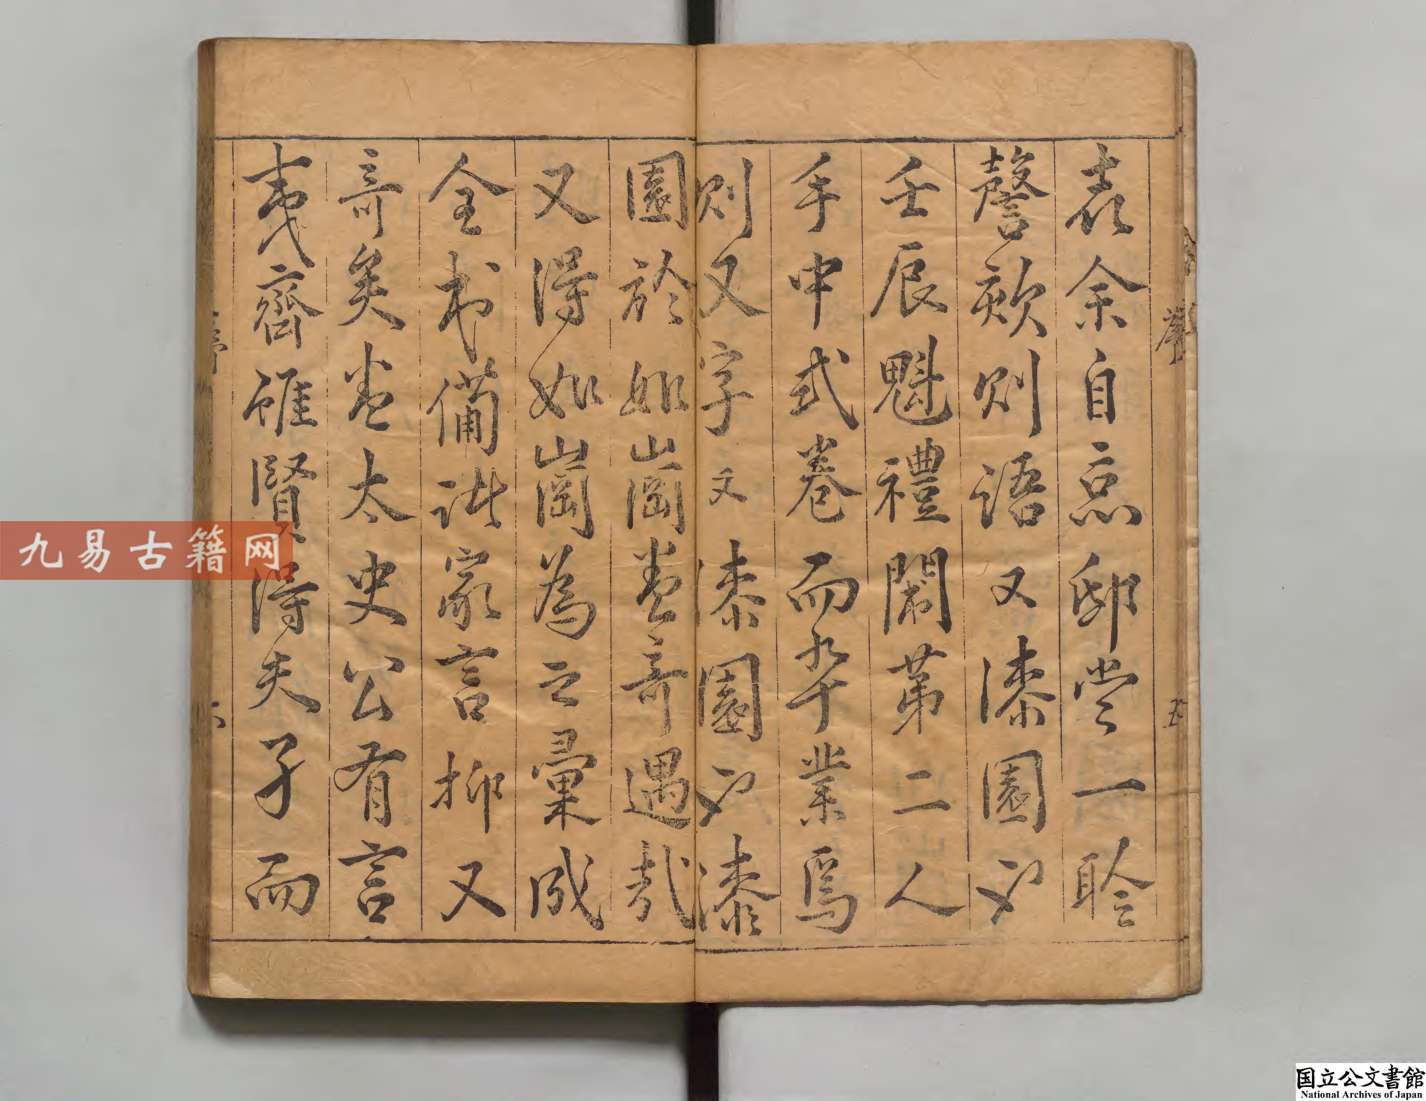 表余自京邸嘗一聆
謦欬則語又漆園也
壬辰魁禮闈第二人
手中式卷而舉業焉
則又字又漆園也漆
園於如崗蓋奇遇哉
又得如崗為之彙成
全书備諸家言抑又
奇矣盖太史公有言
夷齊雖賢得夫子而
五
九易古籍网
国立公文書館
National Archives of Japan